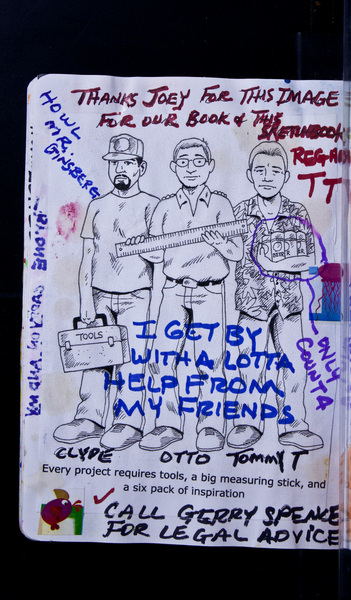 THANKS JOEY FOR THIS IMAGE
FOR OUR BOOK & THIS
SKETCHBOOK
REGARDS
TT
HOWL
MR.
GINSBERG
TOOLS
I GET BY
WITH A LOTTA
HELP FROM
MY FRIENDS
ONLY
COUNTA
CLYDE OTTO TOMMY T
Every project requires tools, a big measuring stick, and
a six pack of inspiration
CALL GERRY SPENCE
FOR LEGAL ADVICE